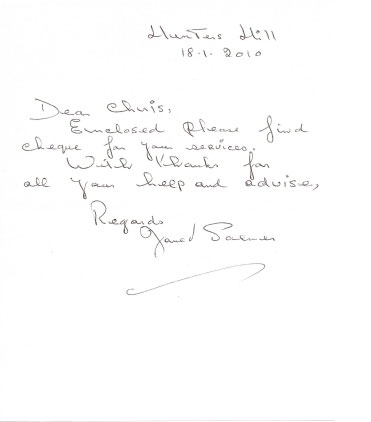 Hunters Hill
18.1.2010
Dear Chris,
Enclosed please find
cheque for your services.
With thanks for
all your help and advise,
Regards